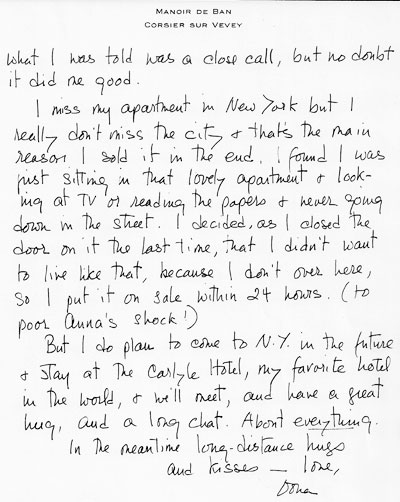 MANOIR DE BAN
CORSIER SUR VEVEY
what I was told was a close call, but no doubt
it did me good.
I miss my apartment in New York but I
really don't miss the city & that's the main
reason I sold it in the end. I found I was
just sitting in that lovely apartment & look-
ing at TV or reading the papers & never going
down in the street. I decided, as I closed the
door on it the last time, that I didn't want
to live like that, because I don't over here,
so I put it on sale within 24 hours. (to
poor Anna's shock!)
But I do plan to come to N.Y. in the future
& stay at the Carlyle Hotel, my favorite hotel
in the world, & we'll meet, and have a great
hug, and a long chat. About everything.
In the meantime long-distance hugs
and kisses — love,
Oona